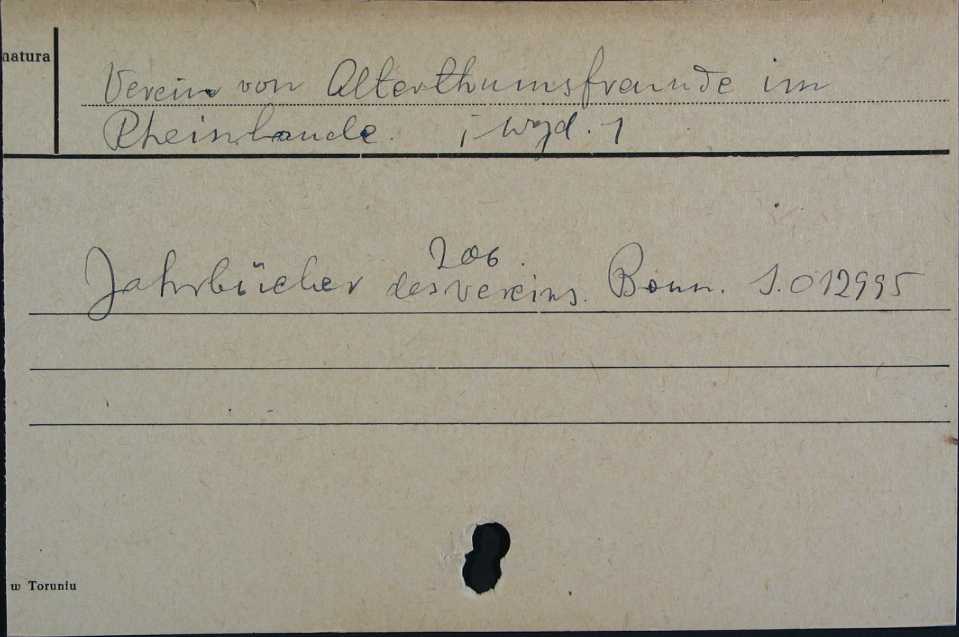 natura
Verein von Alterthumsfreunde im
Rheinlande. [wyd.]
206.
Jahrbücher des Vereins. Bonn. S.012995
w Toruniu